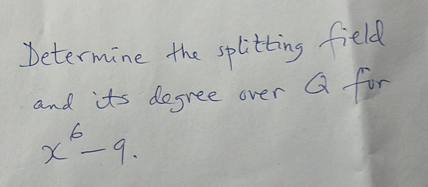 Determine the splitting field
and its degree over Q for
x⁶ - 9.